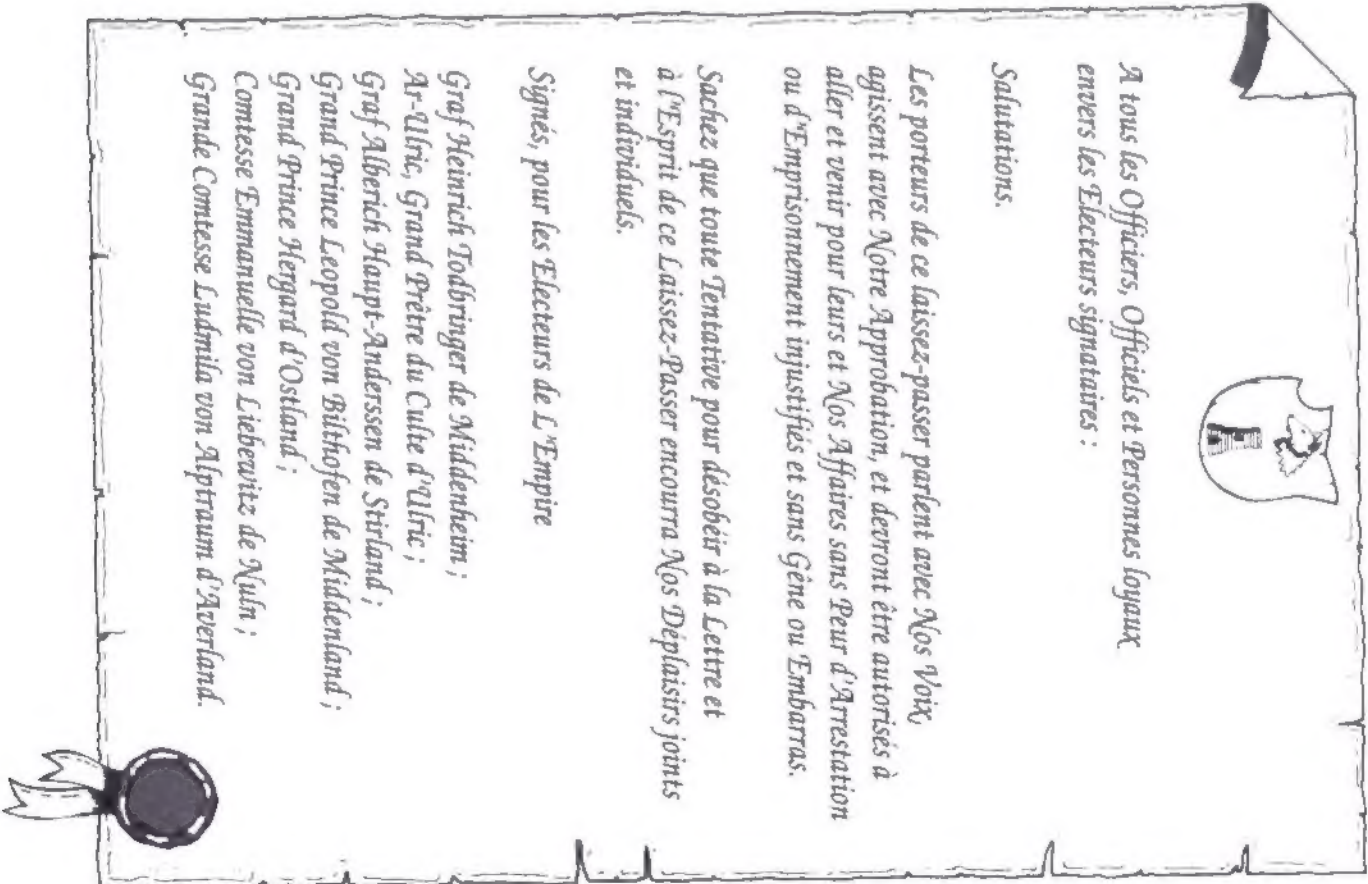 A tous les Officiers, Officiels et Personnes loyaux
envers les Electeurs signataires :
Salutations.
Les porteurs de ce laissez-passer parlent avec Nos Voix,
agissent avec Notre Approbation, et devront être autorisés à
aller et venir pour leurs et Nos Affaires sans Peur d'Arrestation
ou d'Emprisonnement injustifiés et sans Gêne ou Embarras.
Sachez que toute Tentative pour désobéir à la Lettre et
à l'Esprit de ce Laissez-Passer encourra Nos Déplaisirs joints
et individuels.
Signés, pour les Electeurs de L'Empire
Graf Heinrich Todbringer de Middenheim ;
Ar-Ulric, Grand Prêtre du Culte d'Ulric ;
Graf Alberich Haupt-Anderssen de Stirland ;
Grand Prince Leopold von Bilthofen de Middenland ;
Grand Prince Hergard d'Ostland ;
Comtesse Emmanuelle von Liebewitz de Nuln ;
Grande Comtesse Ludmila von Alptraum d'Averland.